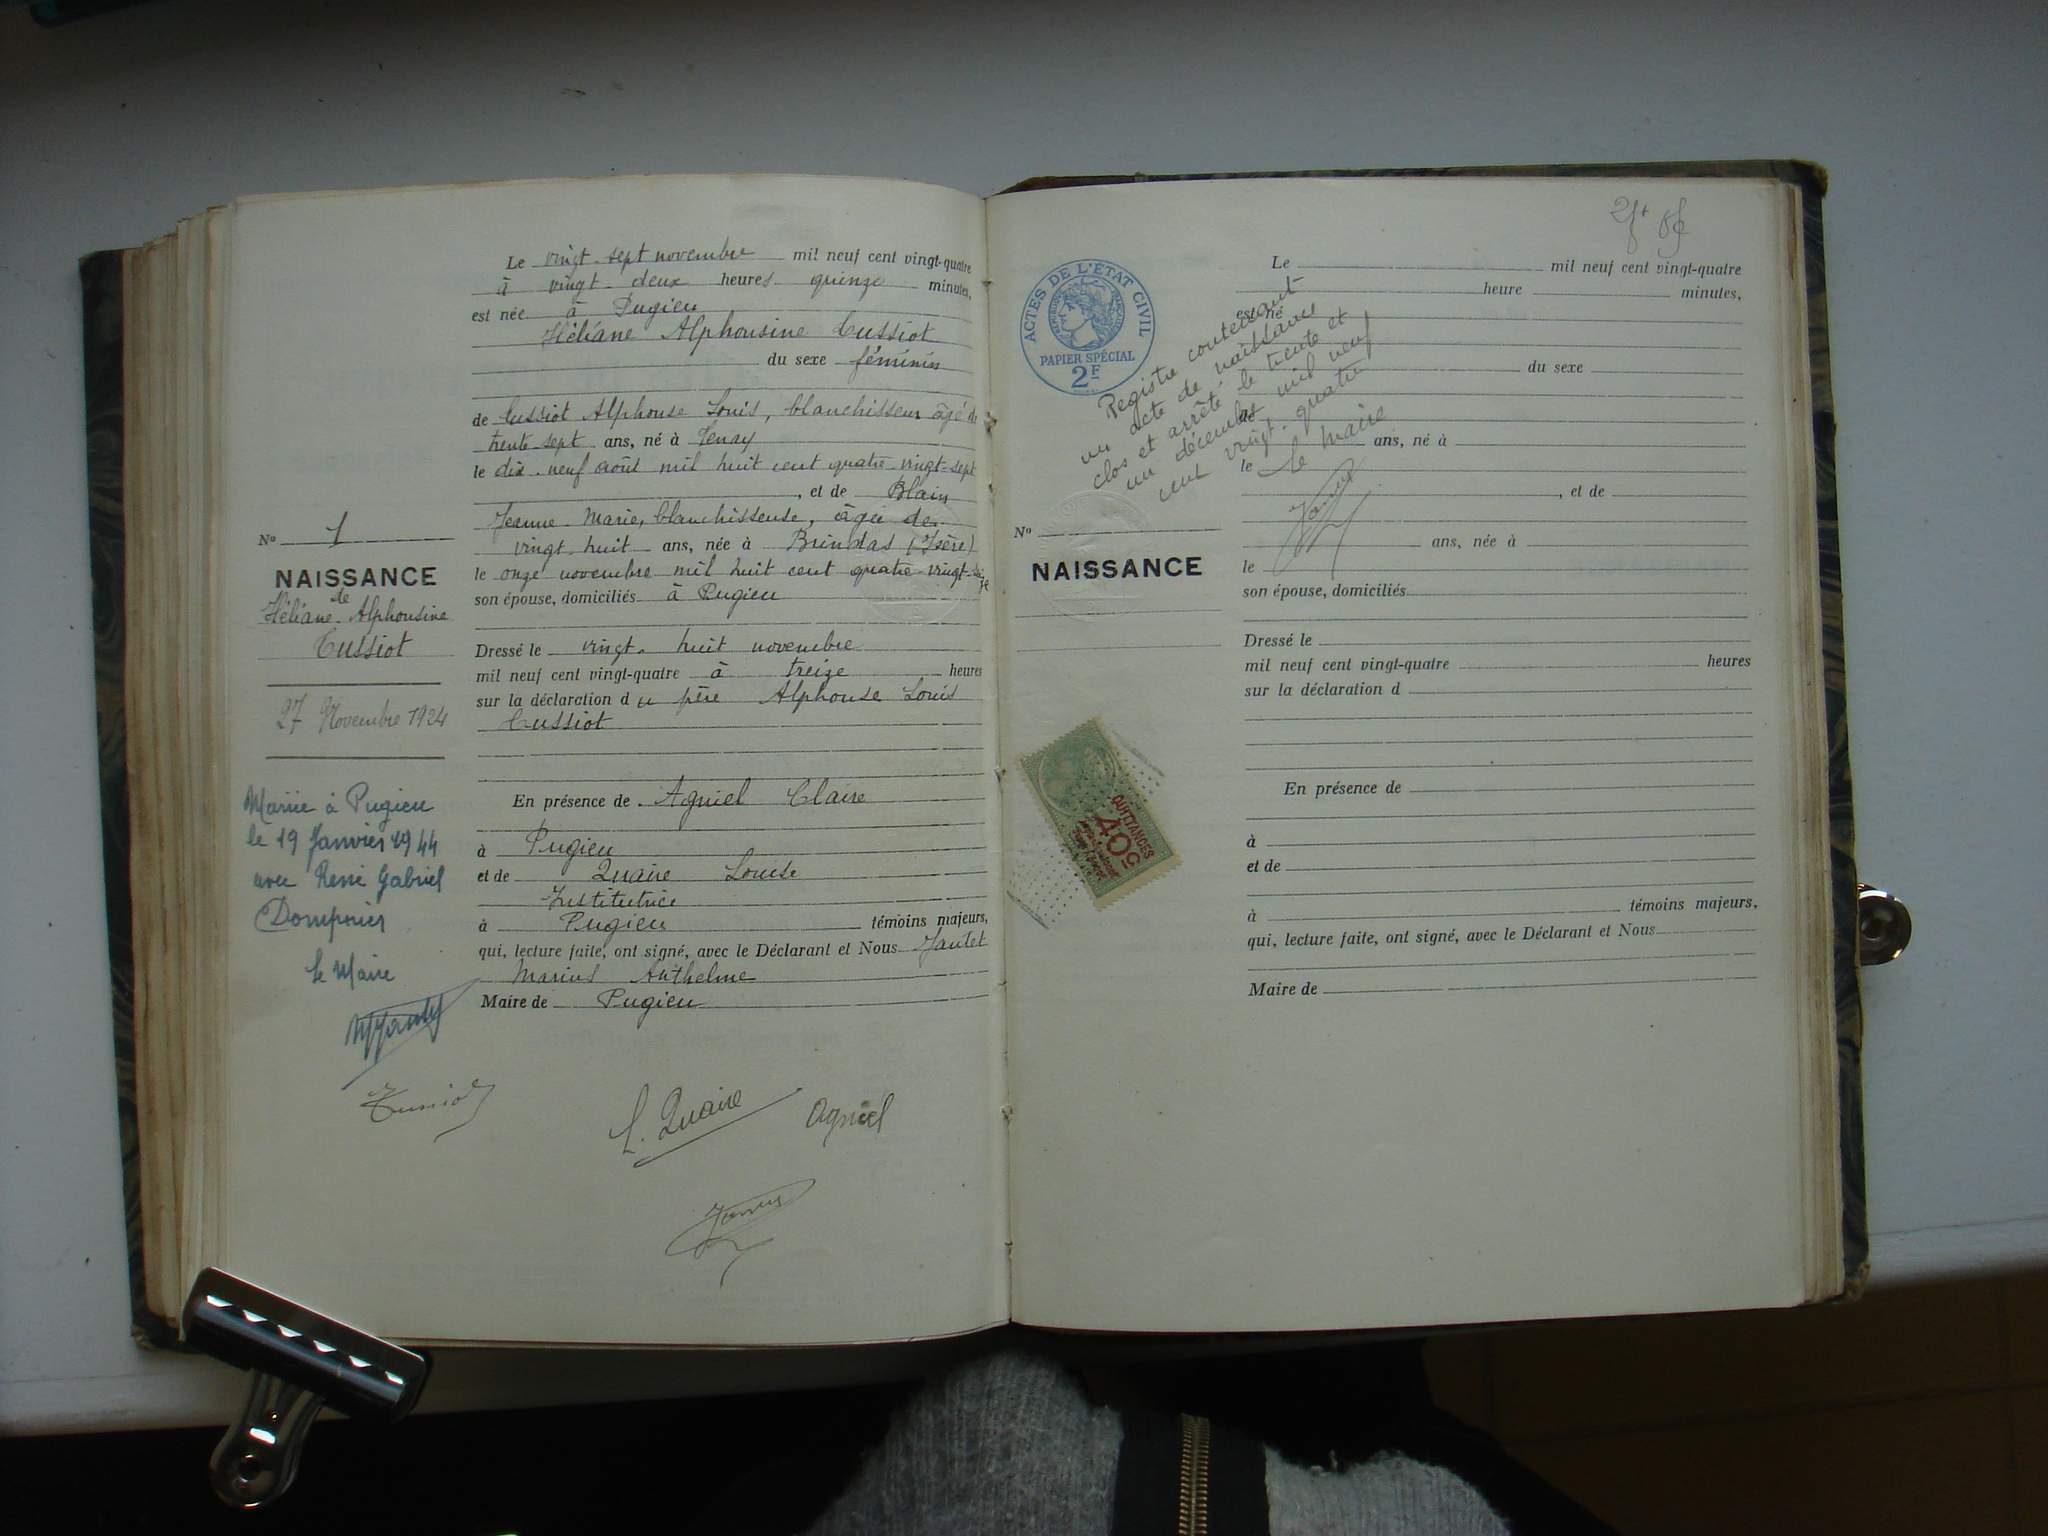 Le vingt-sept novembre mil neuf cent vingt-quatre
à vingt-deux heures quinze minutes,
est née à Pugieu
Héliane Alphonsine Tussiot
du sexe féminin
de Tussiot Alphonse Louis, blanchisseur âgé de
trente sept ans, né à Tenay
le dix-neuf août mil huit cent quatre-vingt-sept
, et de Blain
Jeanne-Marie, blanchisseuse, âgée de
vingt-huit ans, née à Brindas (Isère)
le onze novembre mil huit cent quatre-vingt-seize
son épouse, domiciliés à Pugieu
Dressé le vingt-huit novembre
mil neuf cent vingt-quatre à treize heures
sur la déclaration du père Alphonse Louis
Tussiot
En présence de Agniel Claire
à Pugieu
et de Quaire Louise
Institutrice
à Pugieu témoins majeurs,
qui, lecture faite, ont signé, avec le Déclarant et Nous Jantet
Marius Anthelme
Maire de Pugieu
No 1
NAISSANCE
de
Héliane-Alphonsine
Tussiot
27 Novembre 1924
Mariée à Pugieu
le 19 Janvier 1944
avec René Gabriel
Dompnier
Le Maire
L. Quaire
Agniel
ACTES DE L'ÉTAT CIVIL
RÉPUBLIQUE FRANÇAISE
PAPIER SPÉCIAL
2F
Registre contenant
un acte de naissance
clos et arrêté le trente et
un décembre mil neuf
cent vingt-quatre
Le Maire
Le mil neuf cent vingt-quatre
heure minutes,
est né
du sexe
de
ans, né à
le
, et de
ans, née à
le
son épouse, domiciliés
No
NAISSANCE
Dressé le
mil neuf cent vingt-quatre heures
sur la déclaration d
QUITTANCES
50
En présence de
à
et de
à témoins majeurs,
qui, lecture faite, ont signé, avec le Déclarant et Nous
Maire de